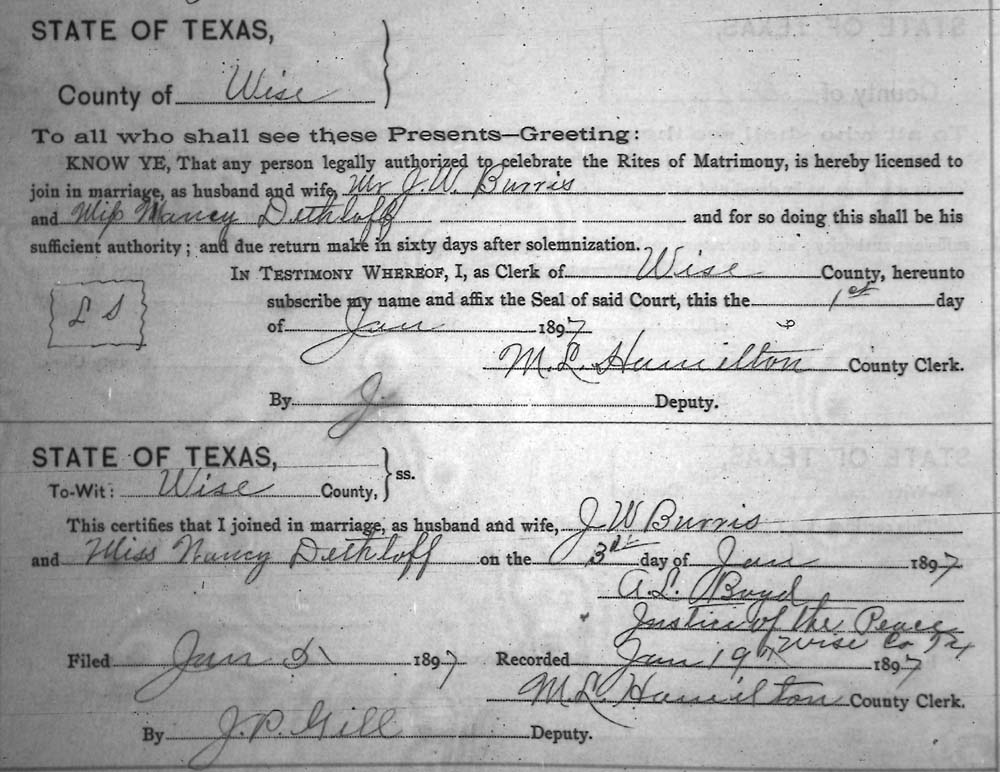 STATE OF TEXAS,
County of Wise
To all who shall see these Presents—Greeting:
KNOW YE, That any person legally authorized to celebrate the Rites of Matrimony, is hereby licensed to
join in marriage, as husband and wife, Mr J.W. Burris
and Miss Nancy Dethloff and for so doing this shall be his
sufficient authority; and due return make in sixty days after solemnization.
IN TESTIMONY WHEREOF, I, as Clerk of Wise County, hereunto
L S
subscribe my name and affix the Seal of said Court, this the 1st day
of Jan 1897
M.L. Hamilton County Clerk.
By Deputy.
STATE OF TEXAS,
To-Wit: Wise County, ss.
This certifies that I joined in marriage, as husband and wife, J W Burris
and Miss Nancy Dethloff on the 3rd day of Jan 1897
A.L. Boyd
Justice of the Peace
Wise Co Tx
Filed Jan 1897 Recorded Jan 19th 1897
M.L. Hamilton County Clerk.
By J.P. Gill Deputy.